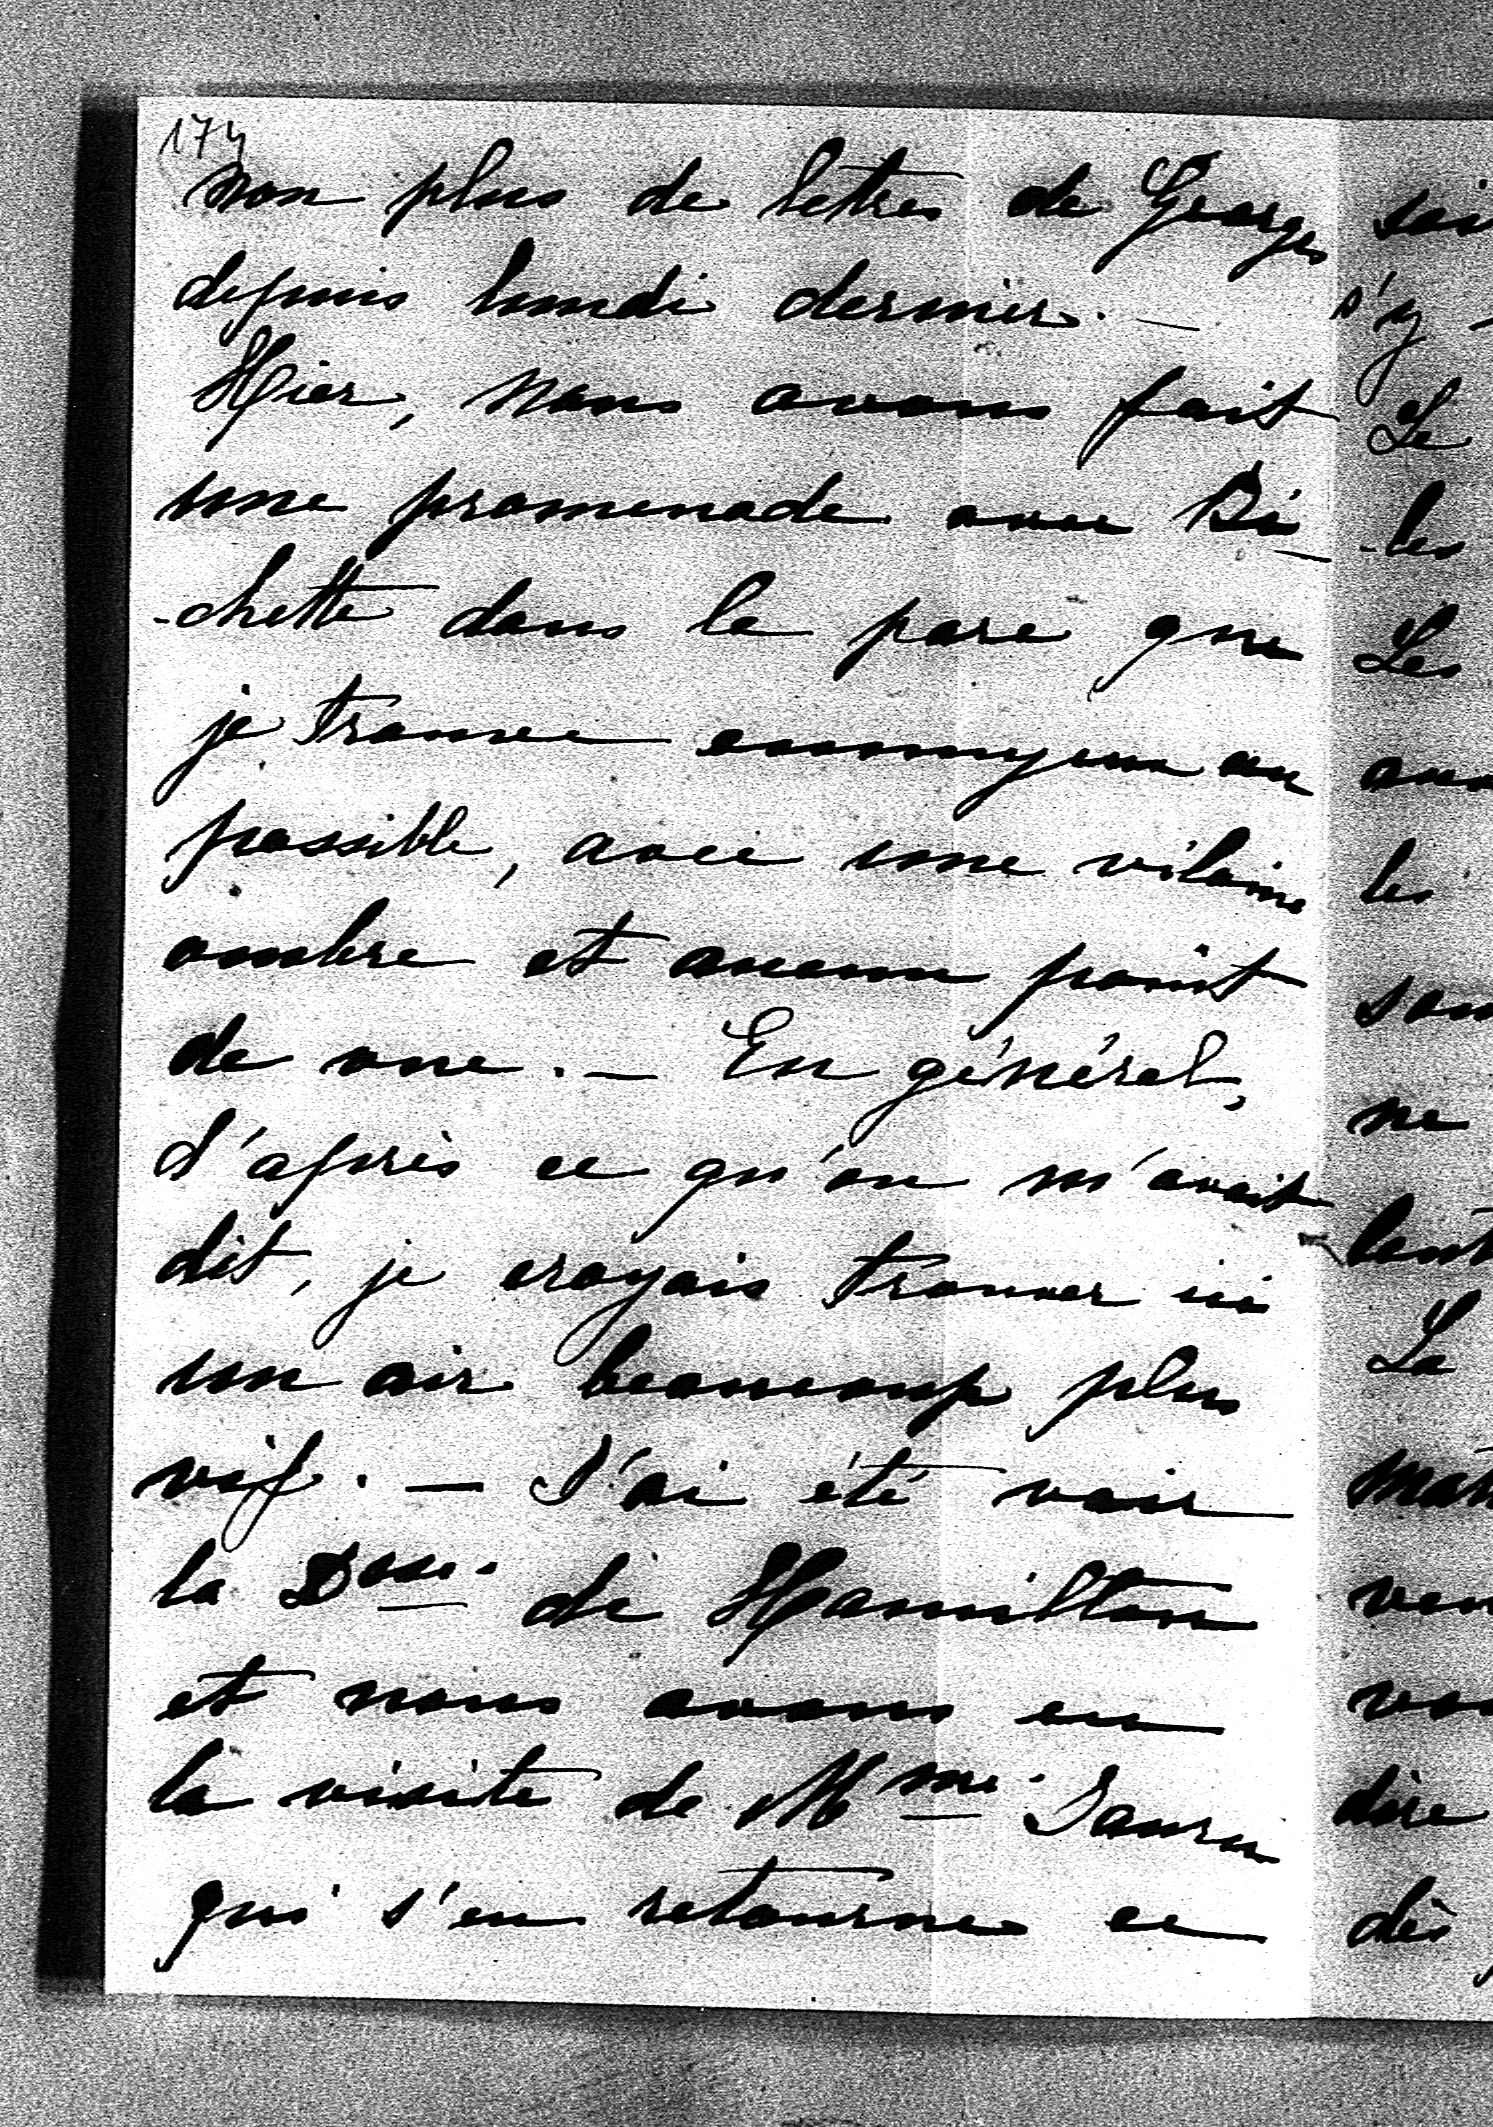 174
non plus de lettres de Georges
depuis lundi dernier. —
Hier, nous avons fait
une promenade avec Bi-
-chette dans le parc que
je trouve ennuyeux au
possible, avec une vilaine
ombre et aucun point
de vue. — En général,
d'après ce qu'on m'avait
dit, je croyais trouver ici
un air beaucoup plus
vif. — J'ai été voir
la Dsse. de Hamilton
et nous avons eu
la visite de Mme.
qui s'en retourne ce
s'y
Le
-les
Les
les
ne
La
dire
dès